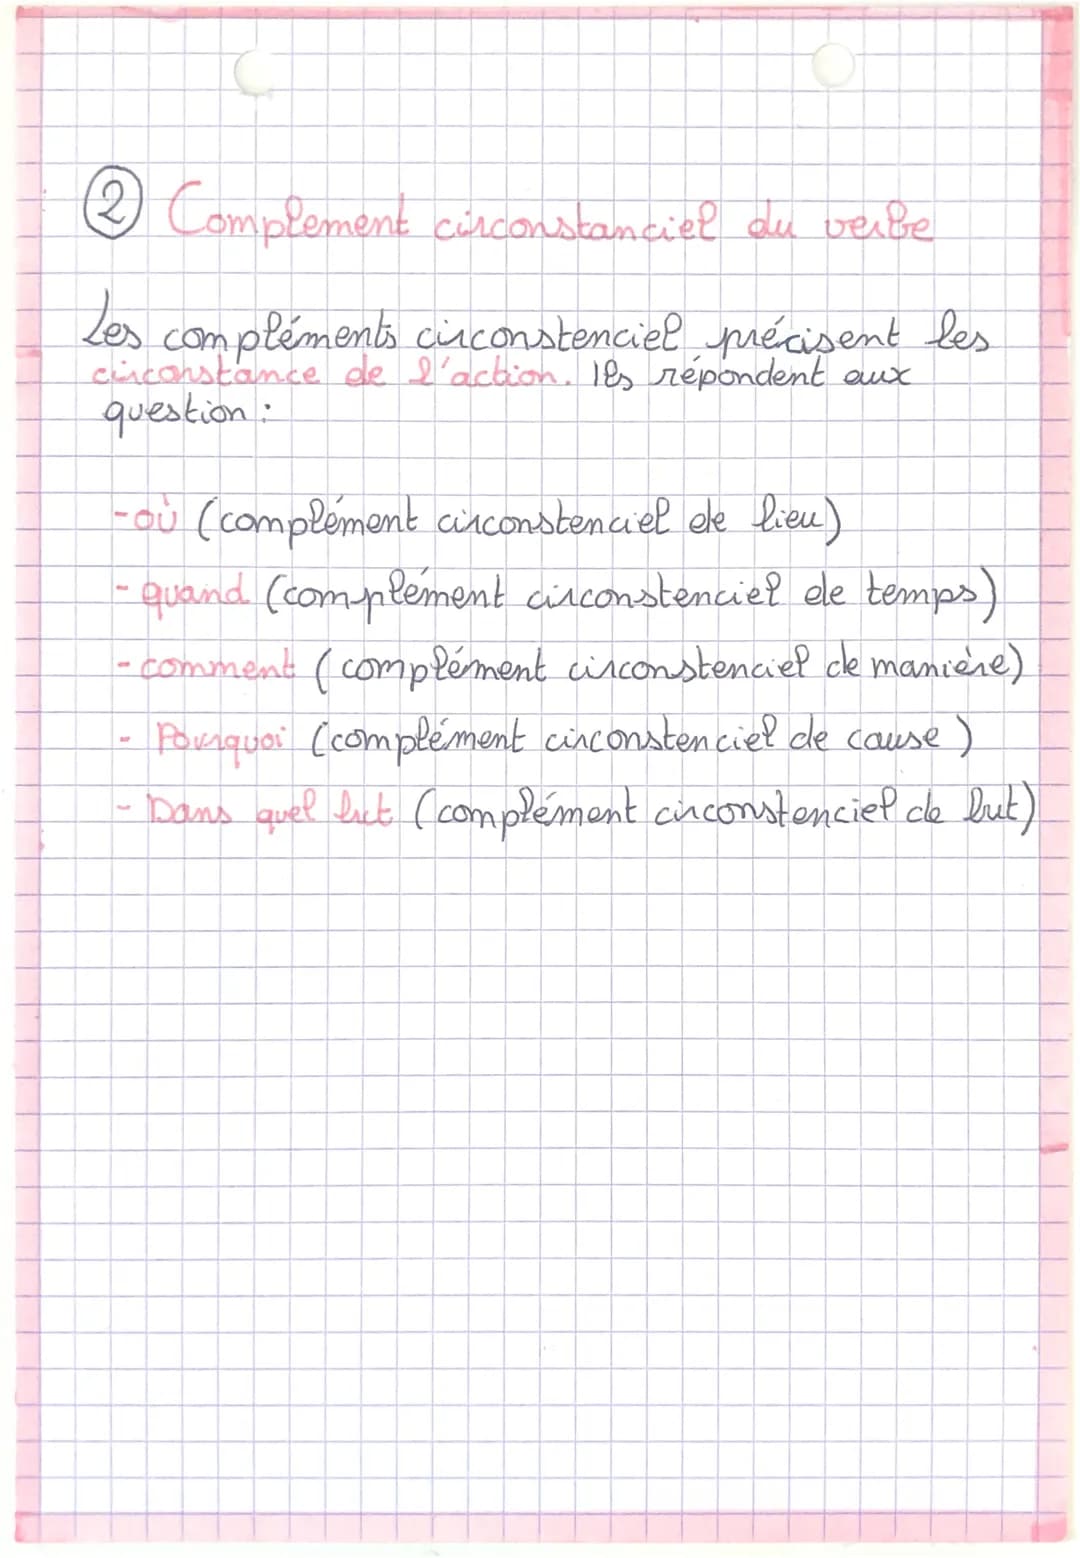 ② Complement circonstanciel du verbe
Les compléments circonstenciel précisent les
circonstance de l'action. Ils répondent aux
question :
-où (complément circonstenciel de lieu)
- quand (complément circonstenciel de temps)
- comment (complément circonstenciel de manière)
- Pourquoi (complément circonstenciel de cause)
- Dans quel but (complément circonstenciel de but)